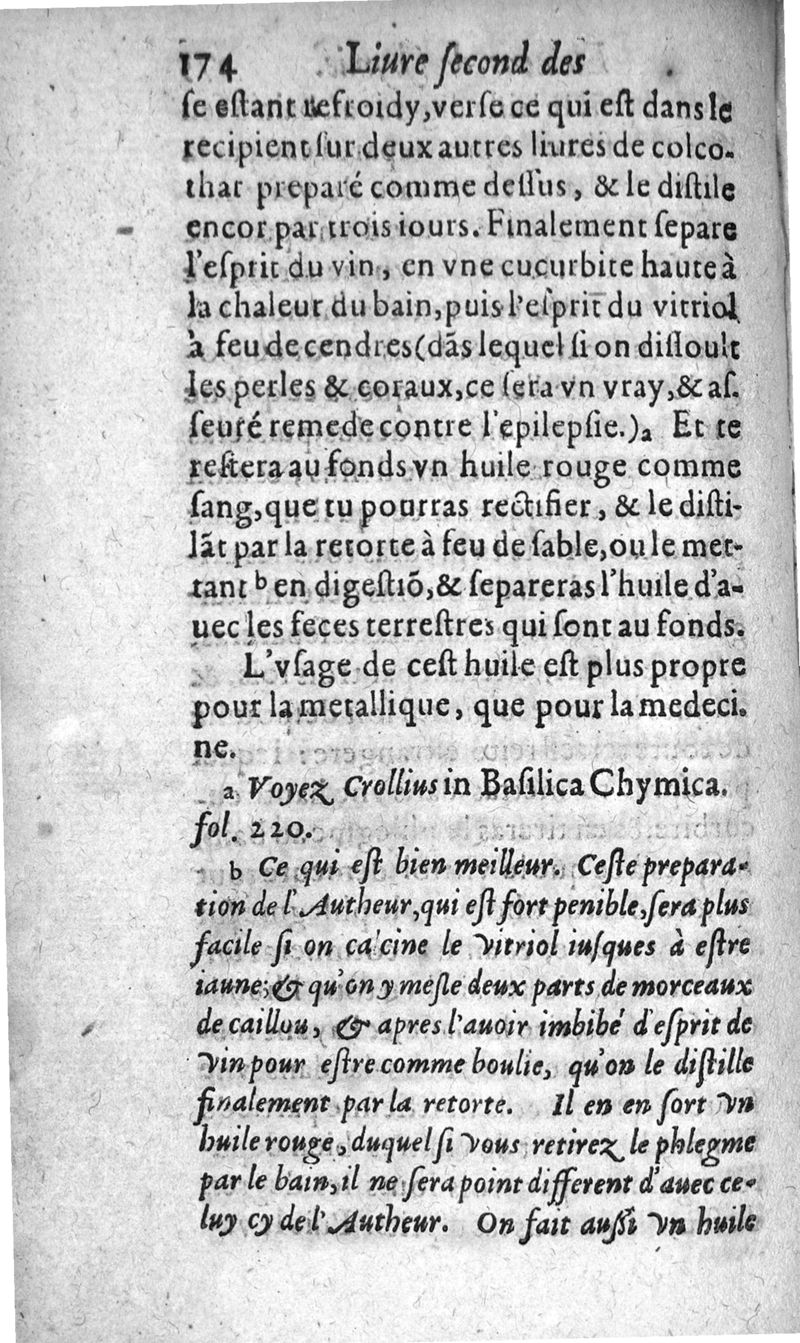 174 Liure ſecond des
ſe eſtant refroidy,verſe ce qui eſt dans le
recipient ſur deux autres liures de colco-
thar preparé comme deſſus, & le diſtile
encor par trois iours. Finalement ſepare
l'eſprit du vin, en vne cucurbite haute à
la chaleur du bain,puis l'eſprit du vitriol
à feu de cendres(dãs lequel ſi on diſſoult
les perles & coraux,ce ſera vn vray,& aſ-
ſeuré remede contre l'epilepſie.)a Et te
reſtera au fonds vn huile rouge comme
ſang,que tu pourras rectifier, & le diſti-
lãt par la retorte à feu de ſable,ou le met-
tant b en digeſtiõ,& ſepareras l'huile d'a-
uec les feces terreſtres qui ſont au fonds.
L'vſage de ceſt huile eſt plus propre
pour la metallique, que pour la medeci-
ne.
a Voyez Crollius in Baſilica Chymica.
fol. 220.
b Ce qui eſt bien meilleur. Ceſte prepara-
tion de l'Autheur,qui eſt fort penible,ſera plus
facile ſi on calcine le Vitriol iuſques à eſtre
iaune;& qu'on y meſle deux parts de morceaux
de caillou, & apres l'auoir imbibé d'eſprit de
Vin pour eſtre comme boulie, qu'on le diſtille
finalement par la retorte. Il en en ſort Vn
huile rouge,duquel ſi Vous retirez le phlegme
par le bain,il ne ſera point different d'auec ce-
luy cy de l'Autheur. On fait auſſi Vn huile